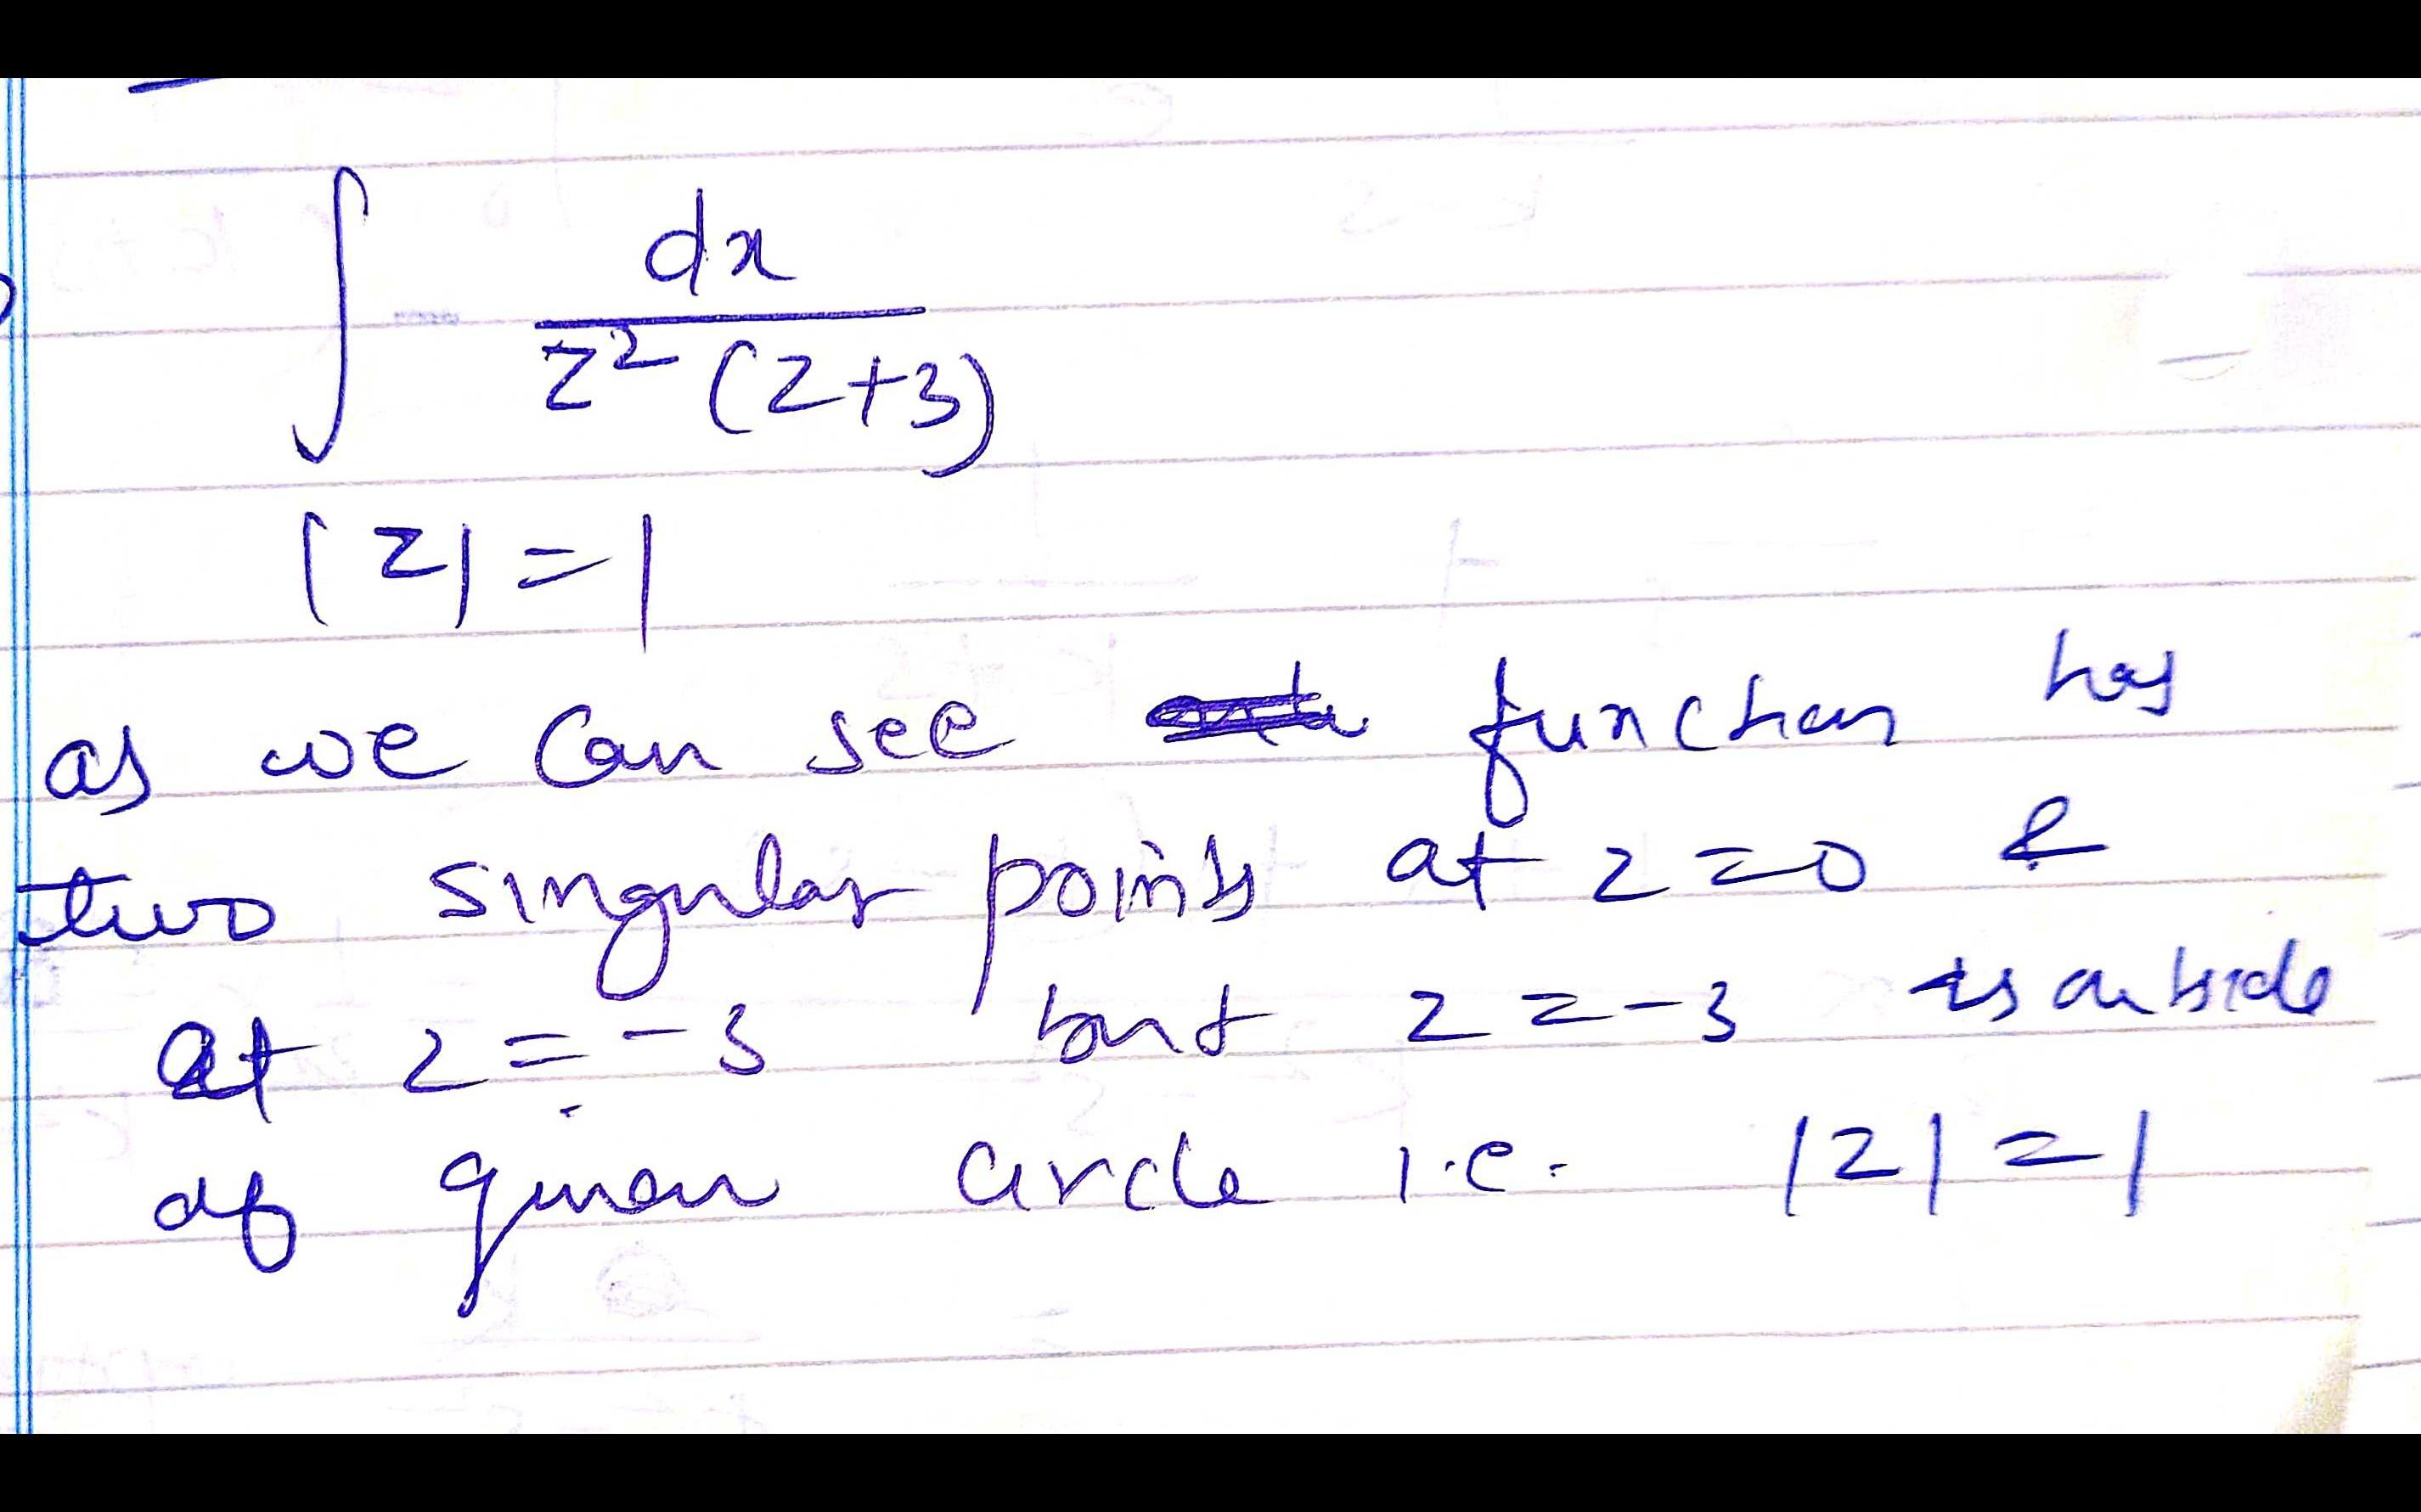 ∫ dx / z² (z+3)
|z| = 1
as we can see function has
two singular points at z = 0 &
at z = -3 but z = -3 is outside
of given circle i.e. |z| = 1